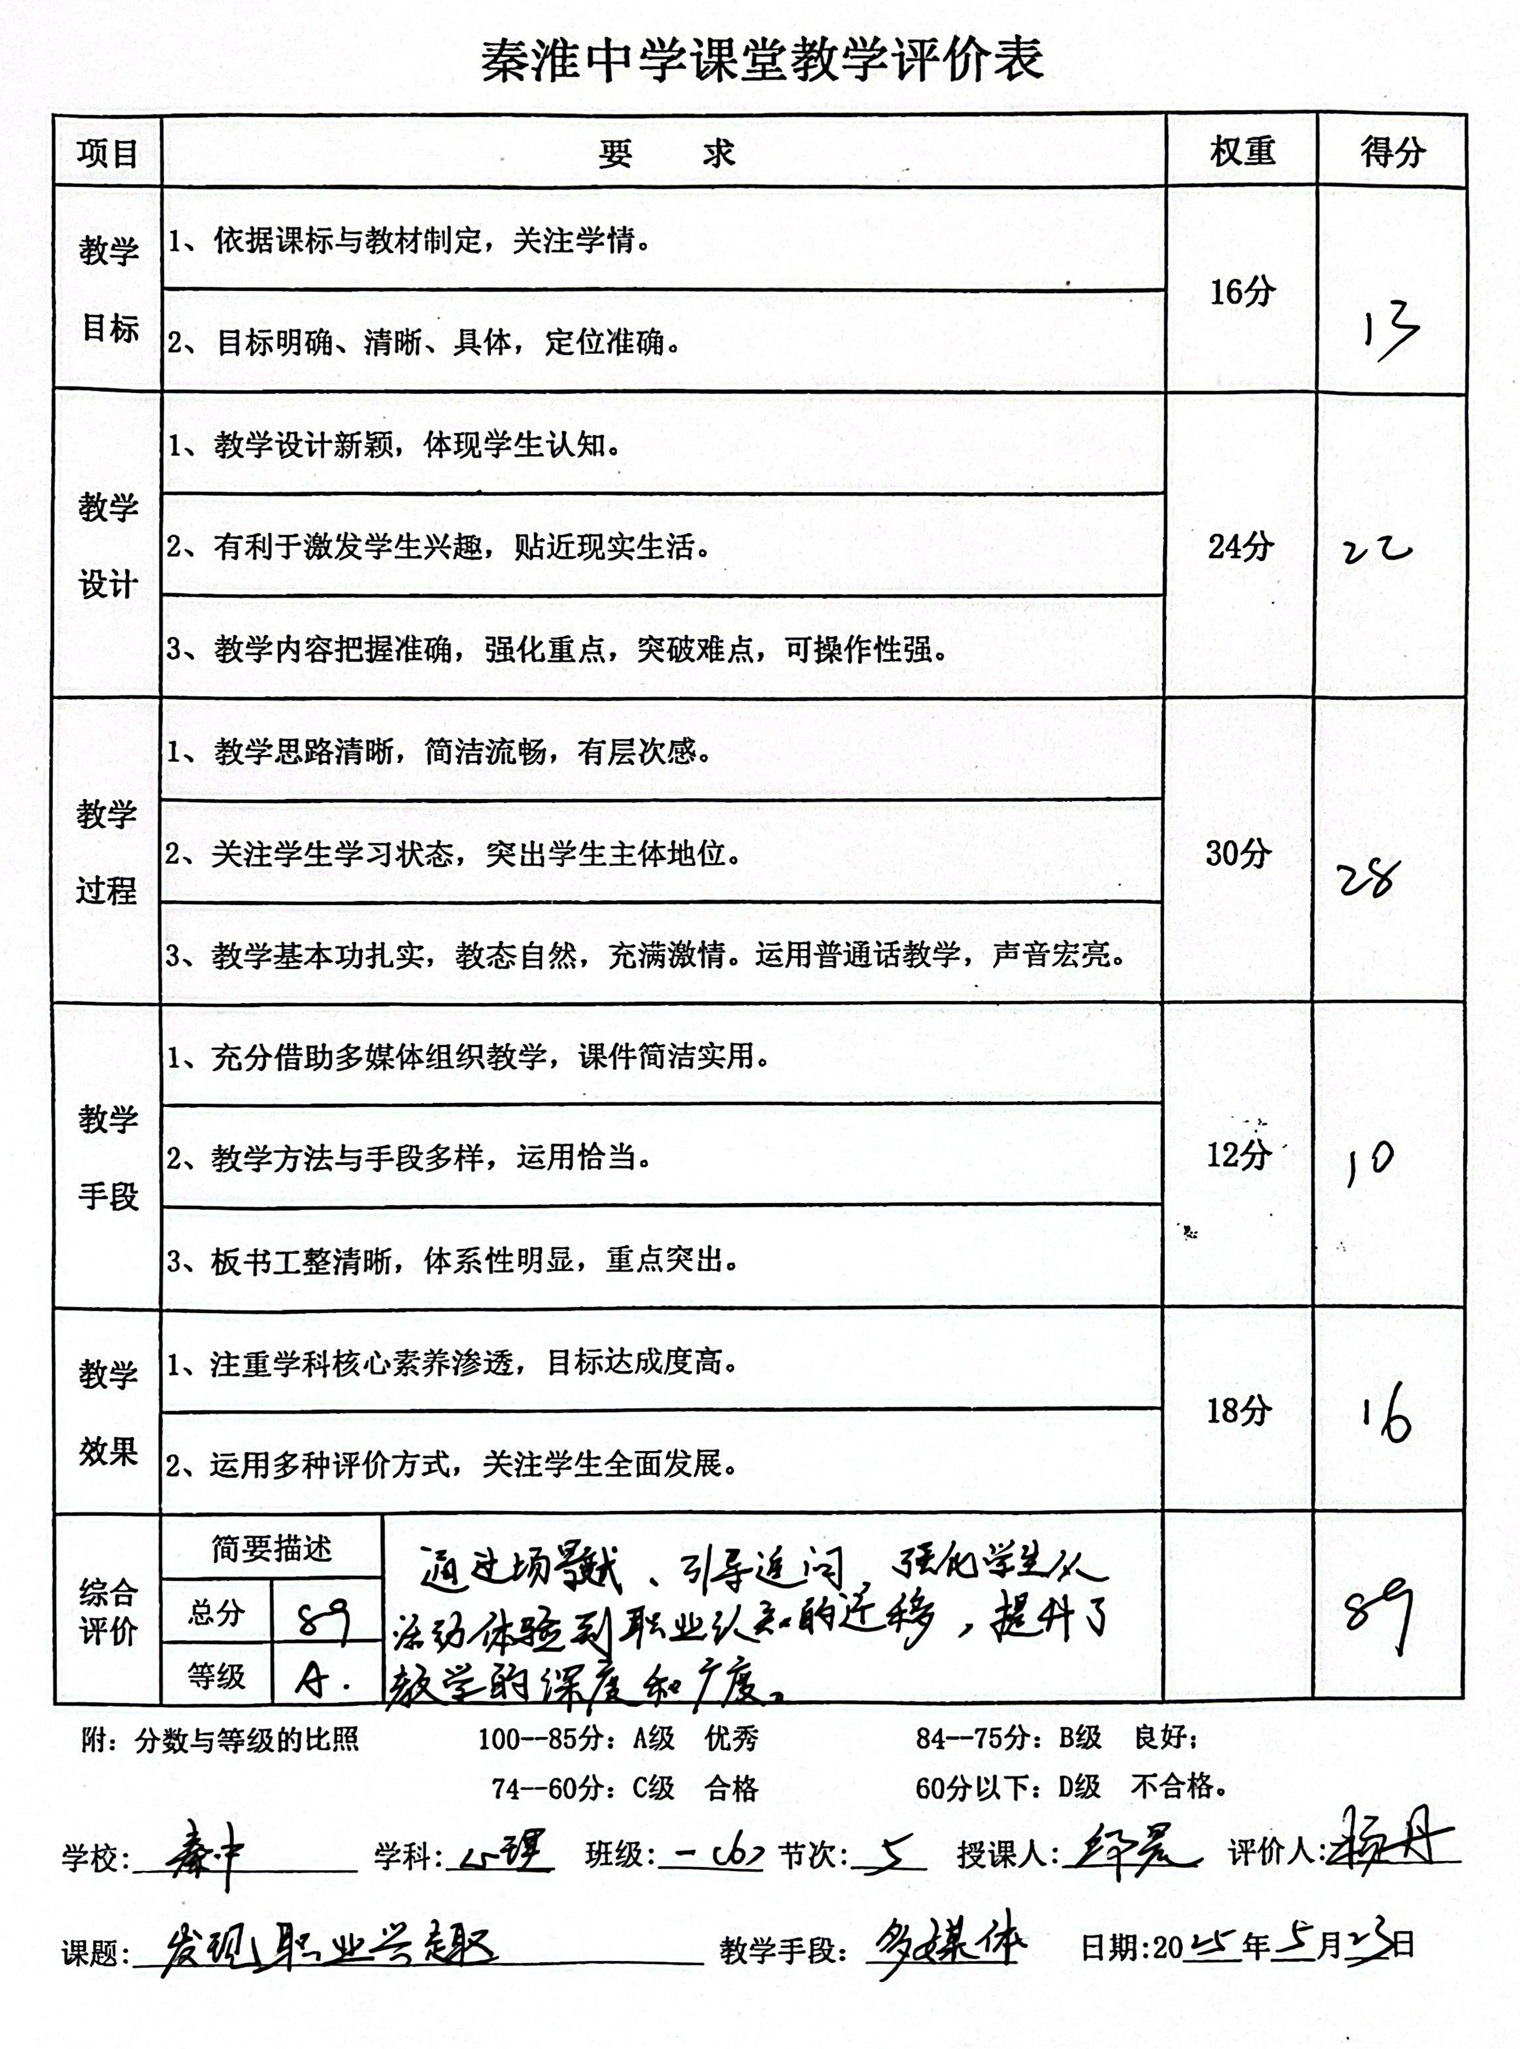 秦淮中学课堂教学评价表
项目 要 求 权重 得分
教学
目标
1、依据课标与教材制定，关注学情。
2、目标明确、清晰、具体，定位准确。
16分 13
教学
设计
1、教学设计新颖，体现学生认知。
2、有利于激发学生兴趣，贴近现实生活。
3、教学内容把握准确，强化重点，突破难点，可操作性强。
24分 22
教学
过程
1、教学思路清晰，简洁流畅，有层次感。
2、关注学生学习状态，突出学生主体地位。
3、教学基本功扎实，教态自然，充满激情。运用普通话教学，声音宏亮。
30分 28
教学
手段
1、充分借助多媒体组织教学，课件简洁实用。
2、教学方法与手段多样，运用恰当。
3、板书工整清晰，体系性明显，重点突出。
12分 10
教学
效果
1、注重学科核心素养渗透，目标达成度高。
2、运用多种评价方式，关注学生全面发展。
18分 16
综合
评价
简要描述
总分 89
等级 A.
通过场景、引导追问，强化学生从
活动体验到职业认知的迁移，提升了
教学的深度和广度。
89
附：分数与等级的比照 100--85分：A级 优秀 84--75分：B级 良好；
74--60分：C级 合格 60分以下：D级 不合格。
学校：秦中 学科：心理 班级：一(6) 节次：5 授课人： 评价人：杨丹
课题：发现职业兴趣 教学手段：多媒体 日期:2025年5月23日